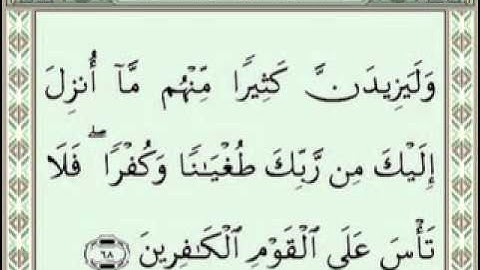 وَلَيَزِيدَنَّ كَثِيرًا مِّنْهُم مَّآ أُنزِلَ
إِلَيْكَ مِن رَّبِّكَ طُغْيَٰنًا وَكُفْرًا ۖ فَلَا
تَأْسَ عَلَى ٱلْقَوْمِ ٱلْكَٰفِرِينَ ٦٨